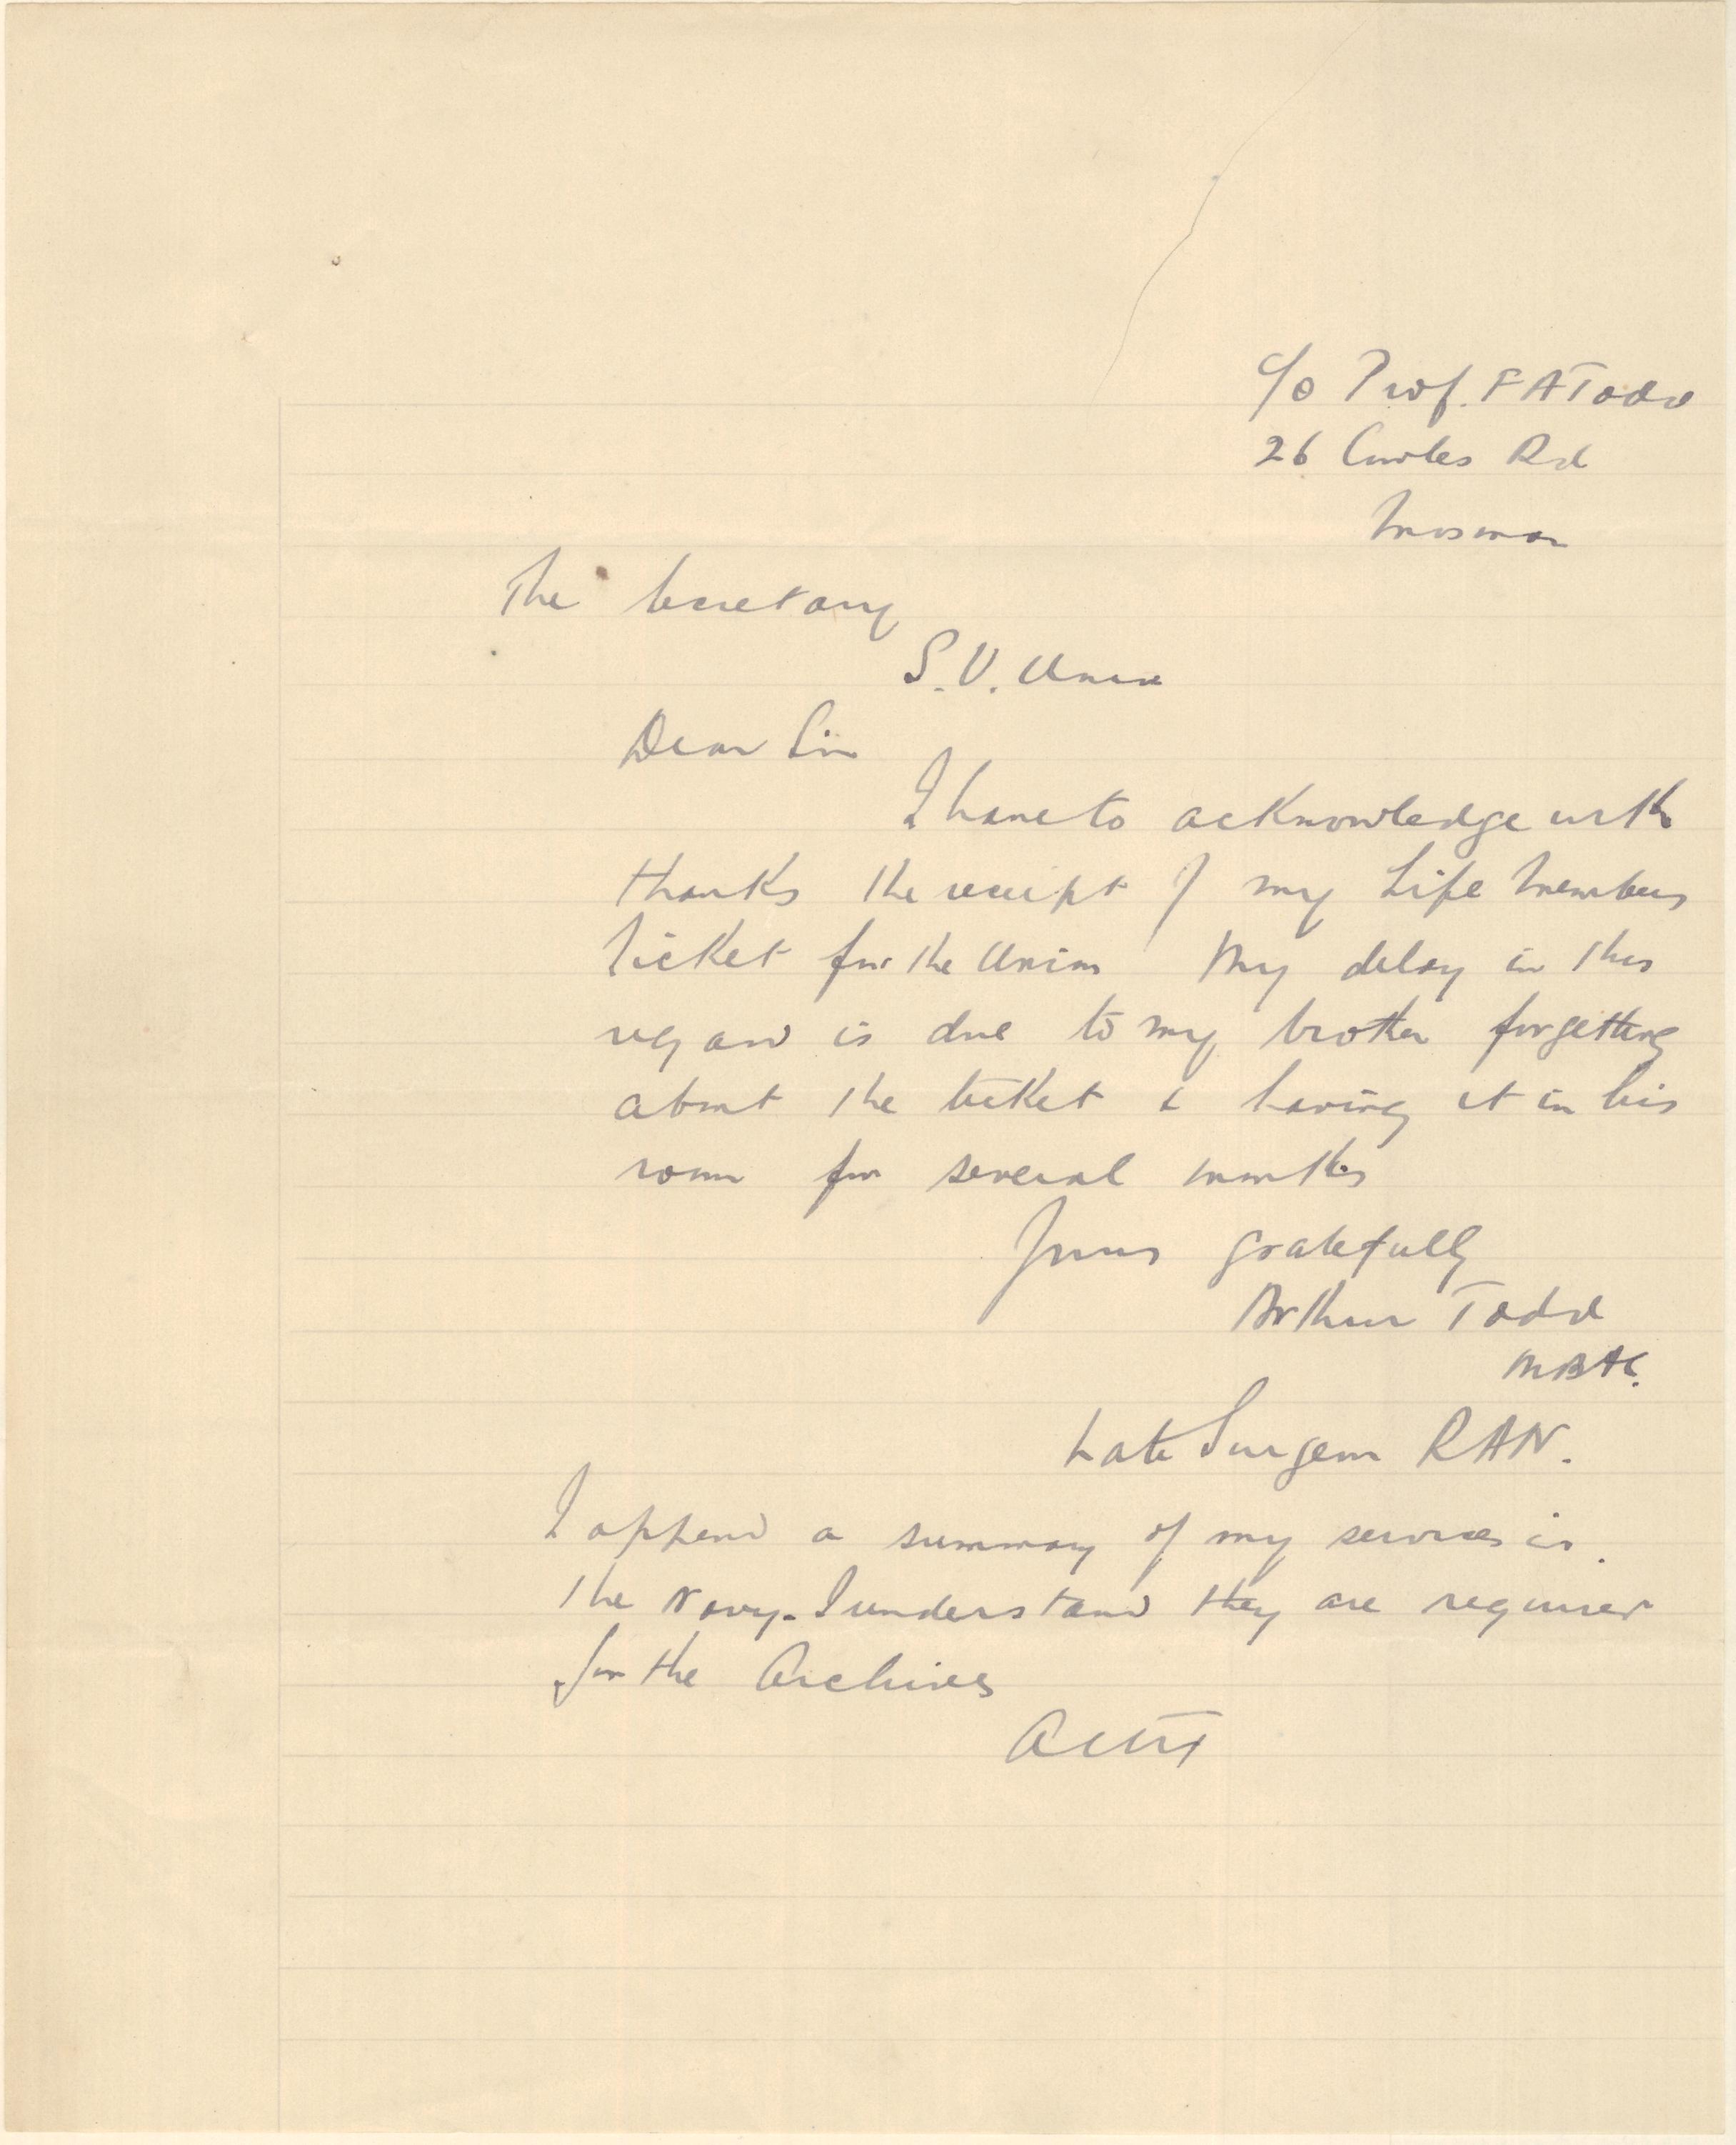 c/o Prof. F A Todd
26 Cowles Rd
Mosman
The Secretary
S.U. Union
Dear Sir
I have to acknowledge with
thanks the receipt of my Life Members
Ticket for the Union My delay in this
regard is due to my brother forgetting
about the ticket & having it in his
room for several months
Yours gratefully
Arthur Todd
Late Surgeon RAN.
I append a summary of my services in
the Navy. I understand they are required
for the Archives